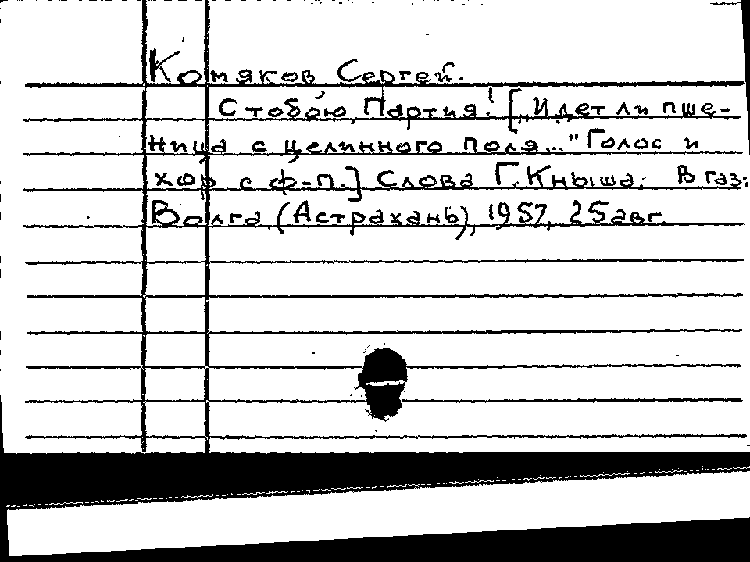 Комяков Сергей.
С тобою, Партия! [„Идет ли пше-
ница с целинного поля..." Голос и
хор с ф-п.] Слова Г. Кныша. В газ:
Волга (Астрахань), 1957, 25 авг.